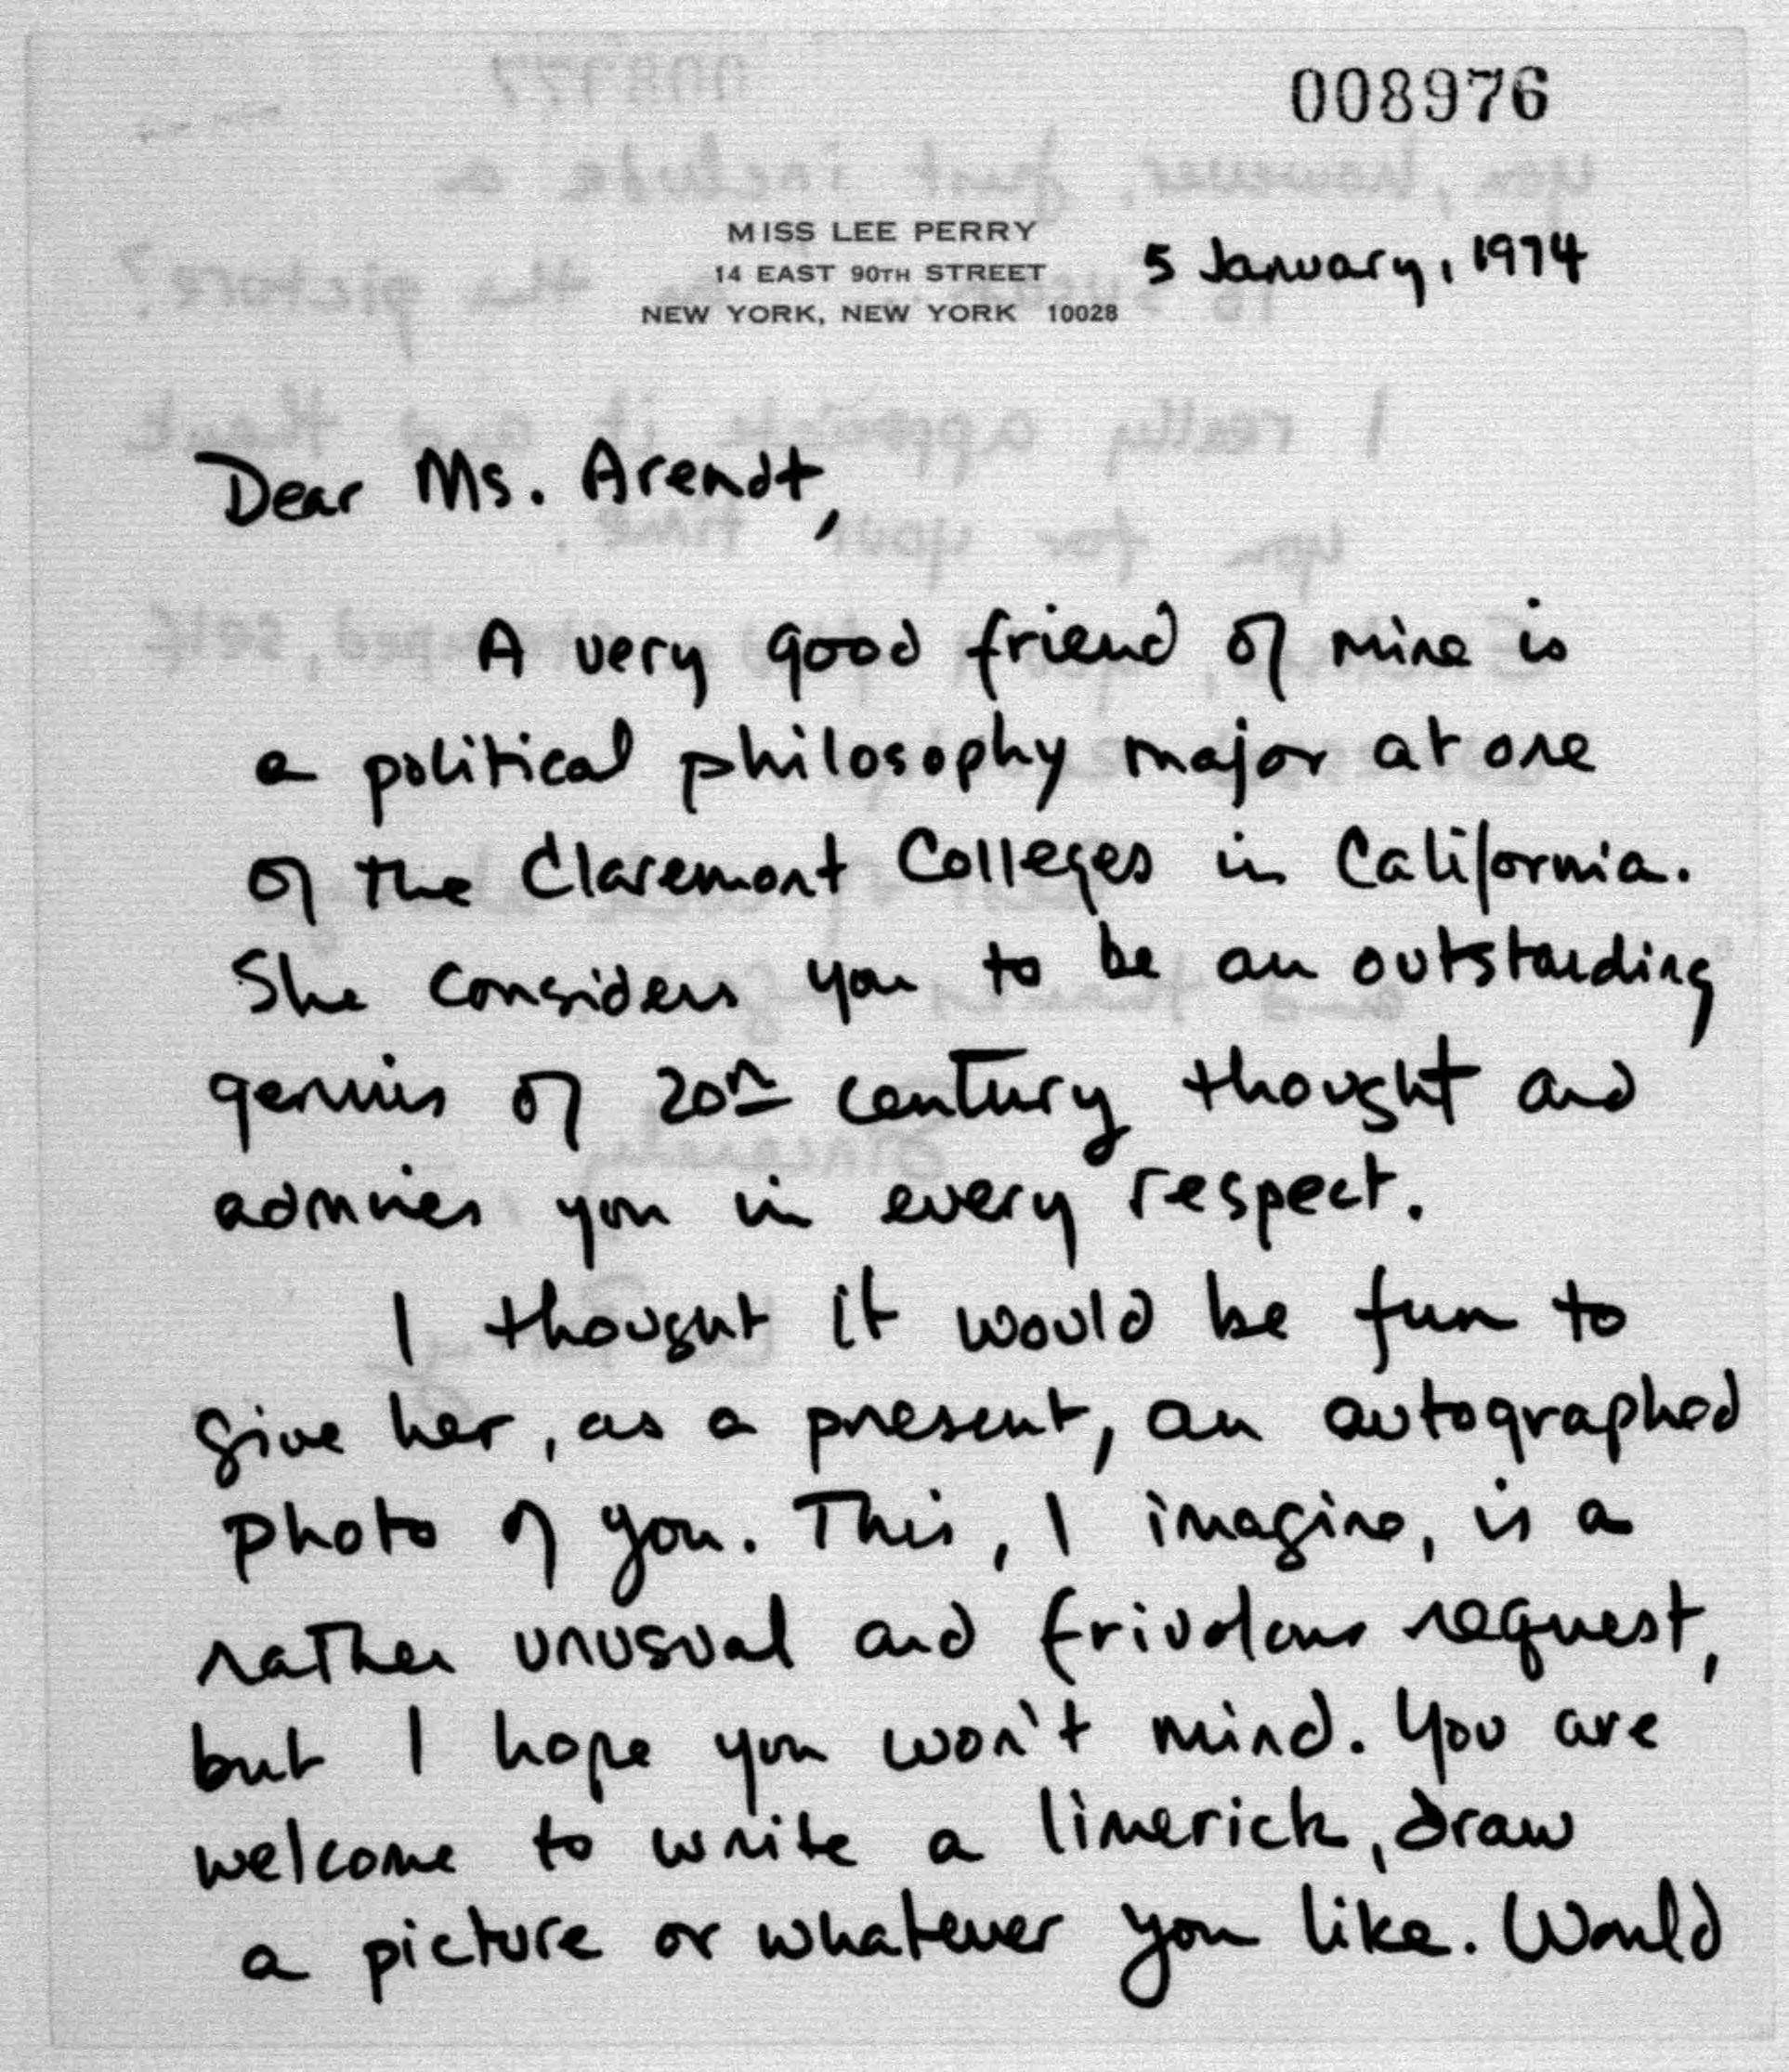 008976
MISS LEE PERRY
14 EAST 90TH STREET
NEW YORK, NEW YORK 10028
5 January, 1974
Dear Ms. Arendt,
A very good friend of mine is
a political philosophy major at one
of the Claremont Colleges in California.
She considers you to be an outstanding
genius of 20th century thought and
admires you in every respect.
I thought it would be fun to
give her, as a present, an autographed
photo of you. This, I imagine, is a
rather unusual and frivolous request,
but I hope you won't mind. You are
welcome to write a limerick, draw
a picture or whatever you like. Would